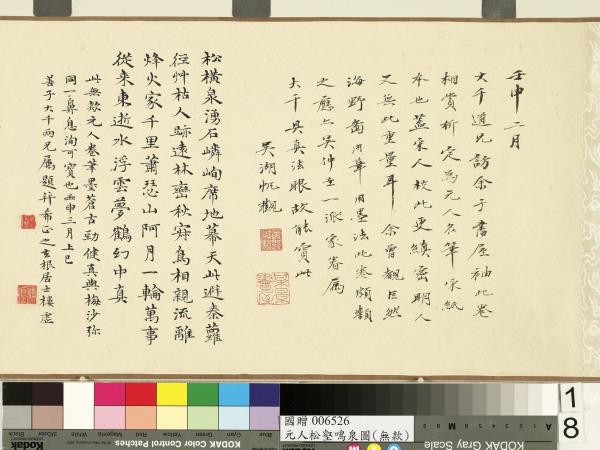 壬申二月
大千道兄訪余于書屋袖此卷
相賞析定為元人名筆宋紙
本也蓋宋人較此更縝密明人
又無此重量耳余曾觀巨然
海野圖用筆用墨法此卷頗類
之應與吳仲圭一派家眷屬
大千具真法眼故能寶此
吳湖帆觀
松橫泉湧石嶙峋席地幕天此避秦蘿
徑艸枯人跡遠林巒秋寂鳥相親流離
烽火家千里蕭瑟山阿月一輪萬事
從来東逝水浮雲夢鶴幻中真
此無欵元人卷筆墨蒼古勁健真與梅沙弥
同一鼻息洵可寶也壬申三月上巳
善子大千兩兄屬題并希正之玄根居士樓虛
國贈 006526
元人松壑鳴泉圖(無款)
Kodak Color Control Patches
Blue
Cyan
Green
Yellow
Red
Magenta
White
3/Color
Black
KODAK Gray Scale
A
M
18